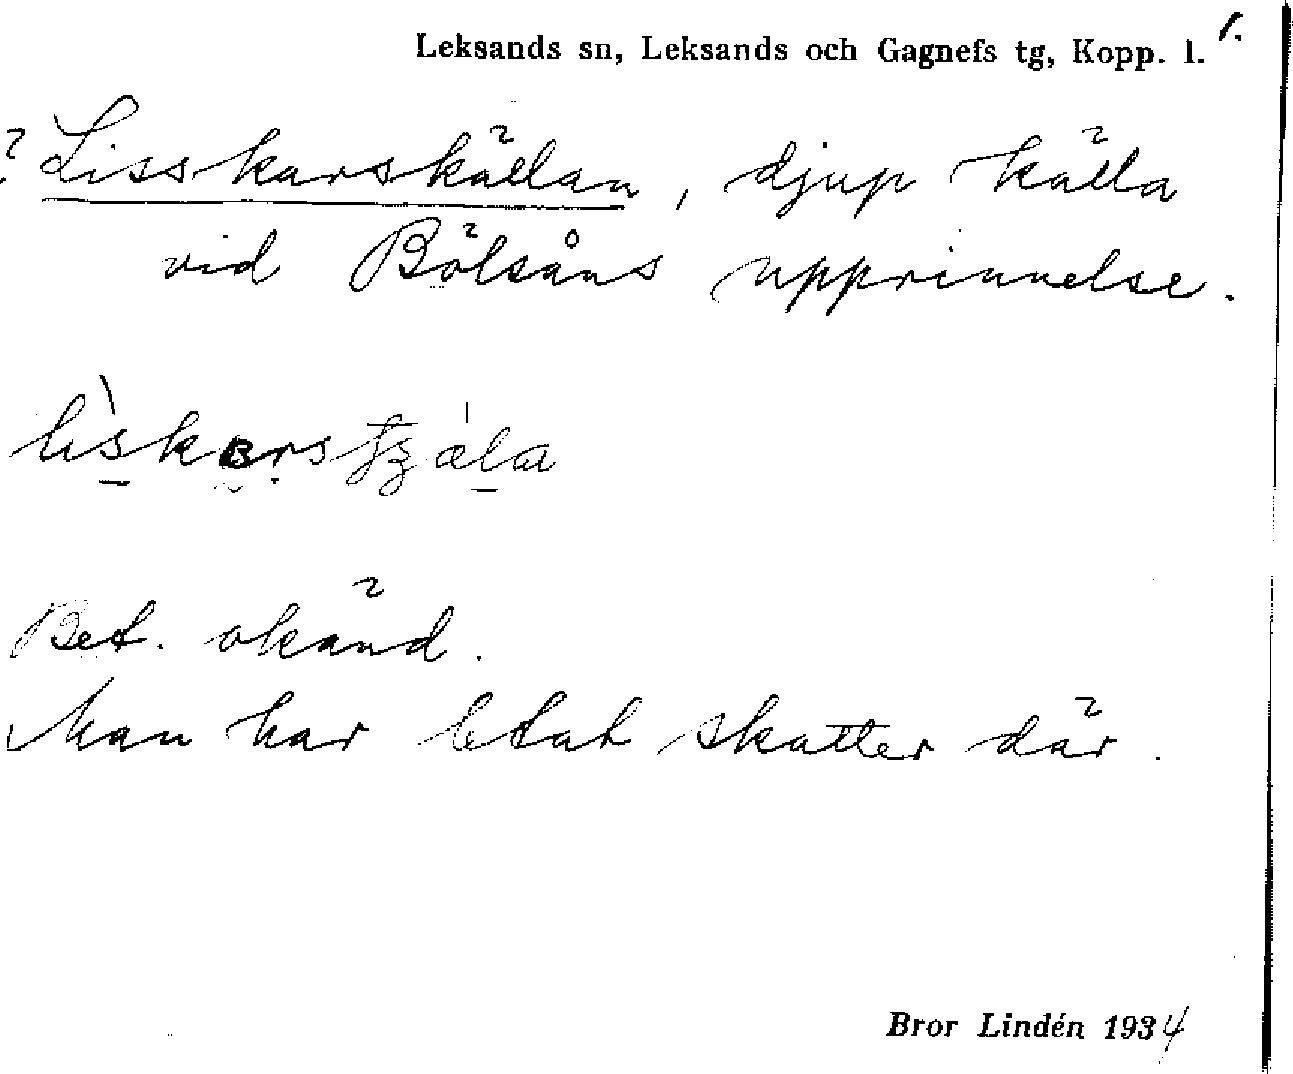 Leksands sn, Leksands och Gagnefs tg, Kopp. l. 1.
? Lisskarskällan, djup källa
vid Bölsåns upprinnelse.
Bet. okänd.
Man har letat skatter där.
Bror Lindén 1934